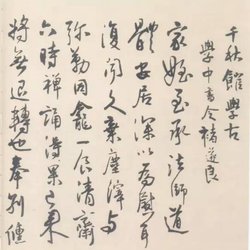 千秋館學古
學中書令褚遂良
家姪至承法師道
體安居深以為慰耳
復聞久棄塵滓与
弥勒同龕一食清齋
六時禅誦得果已来
將無退轉也奉別